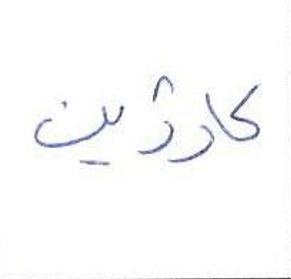 کارژین